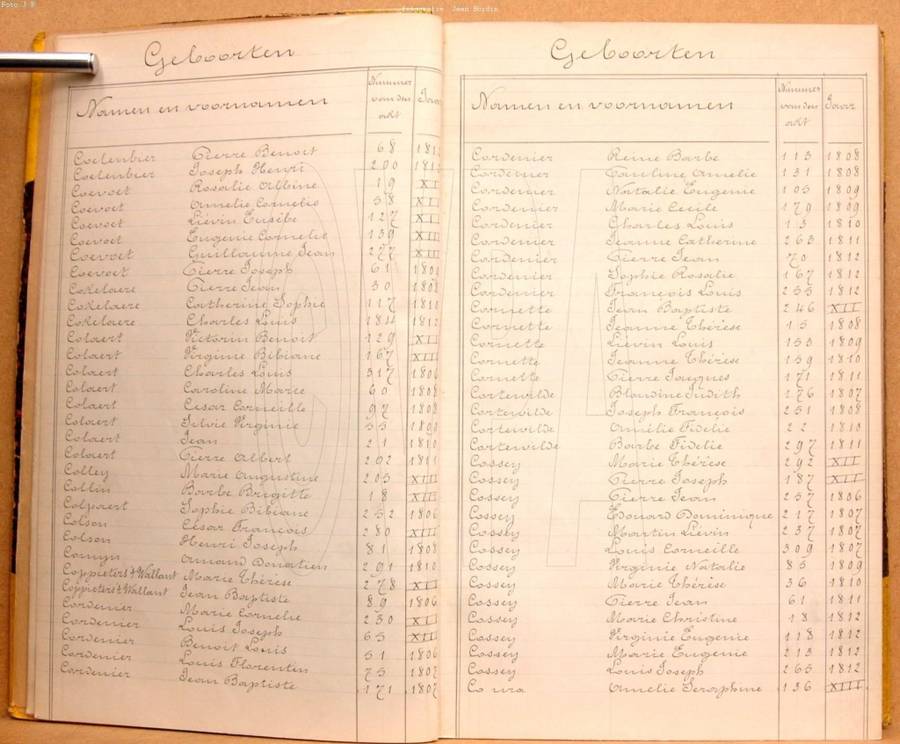 Foto J B
Fotografie Jean Bordin
Geboorten
Namen en voornamen Nummer van den akt Jaar
Coelenbier Pierre Benoit 68 181
Coelenbier Joseph Henri 200 181
Coevoet Rosalie Albine 19 XI
Coevoet Amelie Cornelie 58 XI
Coevoet Liévin Eusébe 127 XI
Coevoet Eugenie Cornelie 139 XIII
Coevoet Guillaume Jean 277 XIII
Coevoet Pierre Joseph 61 180
Cokelaere Pierre Jean 30 1808
Cokelaere Catherine Sophie 117 1810
Cokelaere Charles Louis 184 1812
Colaert Victorin Benoit 129 XII
Colaert Virginie Bibiane 167 XIII
Colaert Charles Louis 317 1806
Colaert Caroline Marie 60 1808
Colaert Cesar Corneille 97 1808
Colaert Silvie Virginie 55
Colaert Jean 21 1810
Colaert Pierre Albert 292 1811
Colley Marie Augustine 205 XIII
Collin Barbe Brigitte 18 XIII
Colpaert Sophie Bibiane 252 1806
Colson César François 280 XIII
Colson Henri Joseph 81 1808
Comyn Amand Donatien 291 1810
Coppieters d'Wallant Marie Thérèse 278 XII
Coppieters d'Wallant Jean Baptiste 89 1806
Cordenier Marie Cornelie 230 XII
Cordenier Louis Joseph 65 XII
Cordenier Benoit Louis 51 1806
Cordenier Louis Florentin 75 1807
Cordenier Jean Baptiste 171 1807
Geboorten
Namen en voornamen Nummer van den akt Jaar
Cordenier Reine Barbe 113 1808
Cordenier Pauline Amelie 131 1808
Cordenier Natalie Eugenie 105 1809
Cordenier Marie Cecile 179 1809
Cordenier Charles Louis 13 1810
Cordenier Jeanne Catherine 263 1811
Cordenier Pierre Jean 70 1812
Cordenier Sophie Rosalie 167 1812
Cordenier François Louis 255 1812
Cornette Jean Baptiste 246 XII
Cornette Jeanne Thérèse 15 1808
Cornette Liévin Louis 153 1809
Cornette Jeanne Thérèse 159 1810
Cornette Pierre Jacques 171 1811
Cortewilde Blandine Judith 176 1807
Cortewilde Joseph François 251 1808
Cortewilde Amélie Fidelie 22 1810
Cortewilde Barbe Fidelie 297 1811
Cossey Marie Thérèse 292 XII
Cossey Pierre Joseph 187 XII
Cossey Pierre Jean 257 1806
Cossey Edouard Dominique 217 1807
Cossey Martin Liévin 237 1807
Cossey Louis Corneille 309 1807
Cossey Virginie Natalie 85 1809
Cossey Marie Thérèse 36 1810
Cossey Pierre Jean 61 1811
Cossey Marie Christine 18 1812
Cossey Virginie Eugenie 118 1812
Cossey Marie Eugenie 213 1812
Cossey Louis Joseph 265 1812
Amelie Seraphine 136 XIII